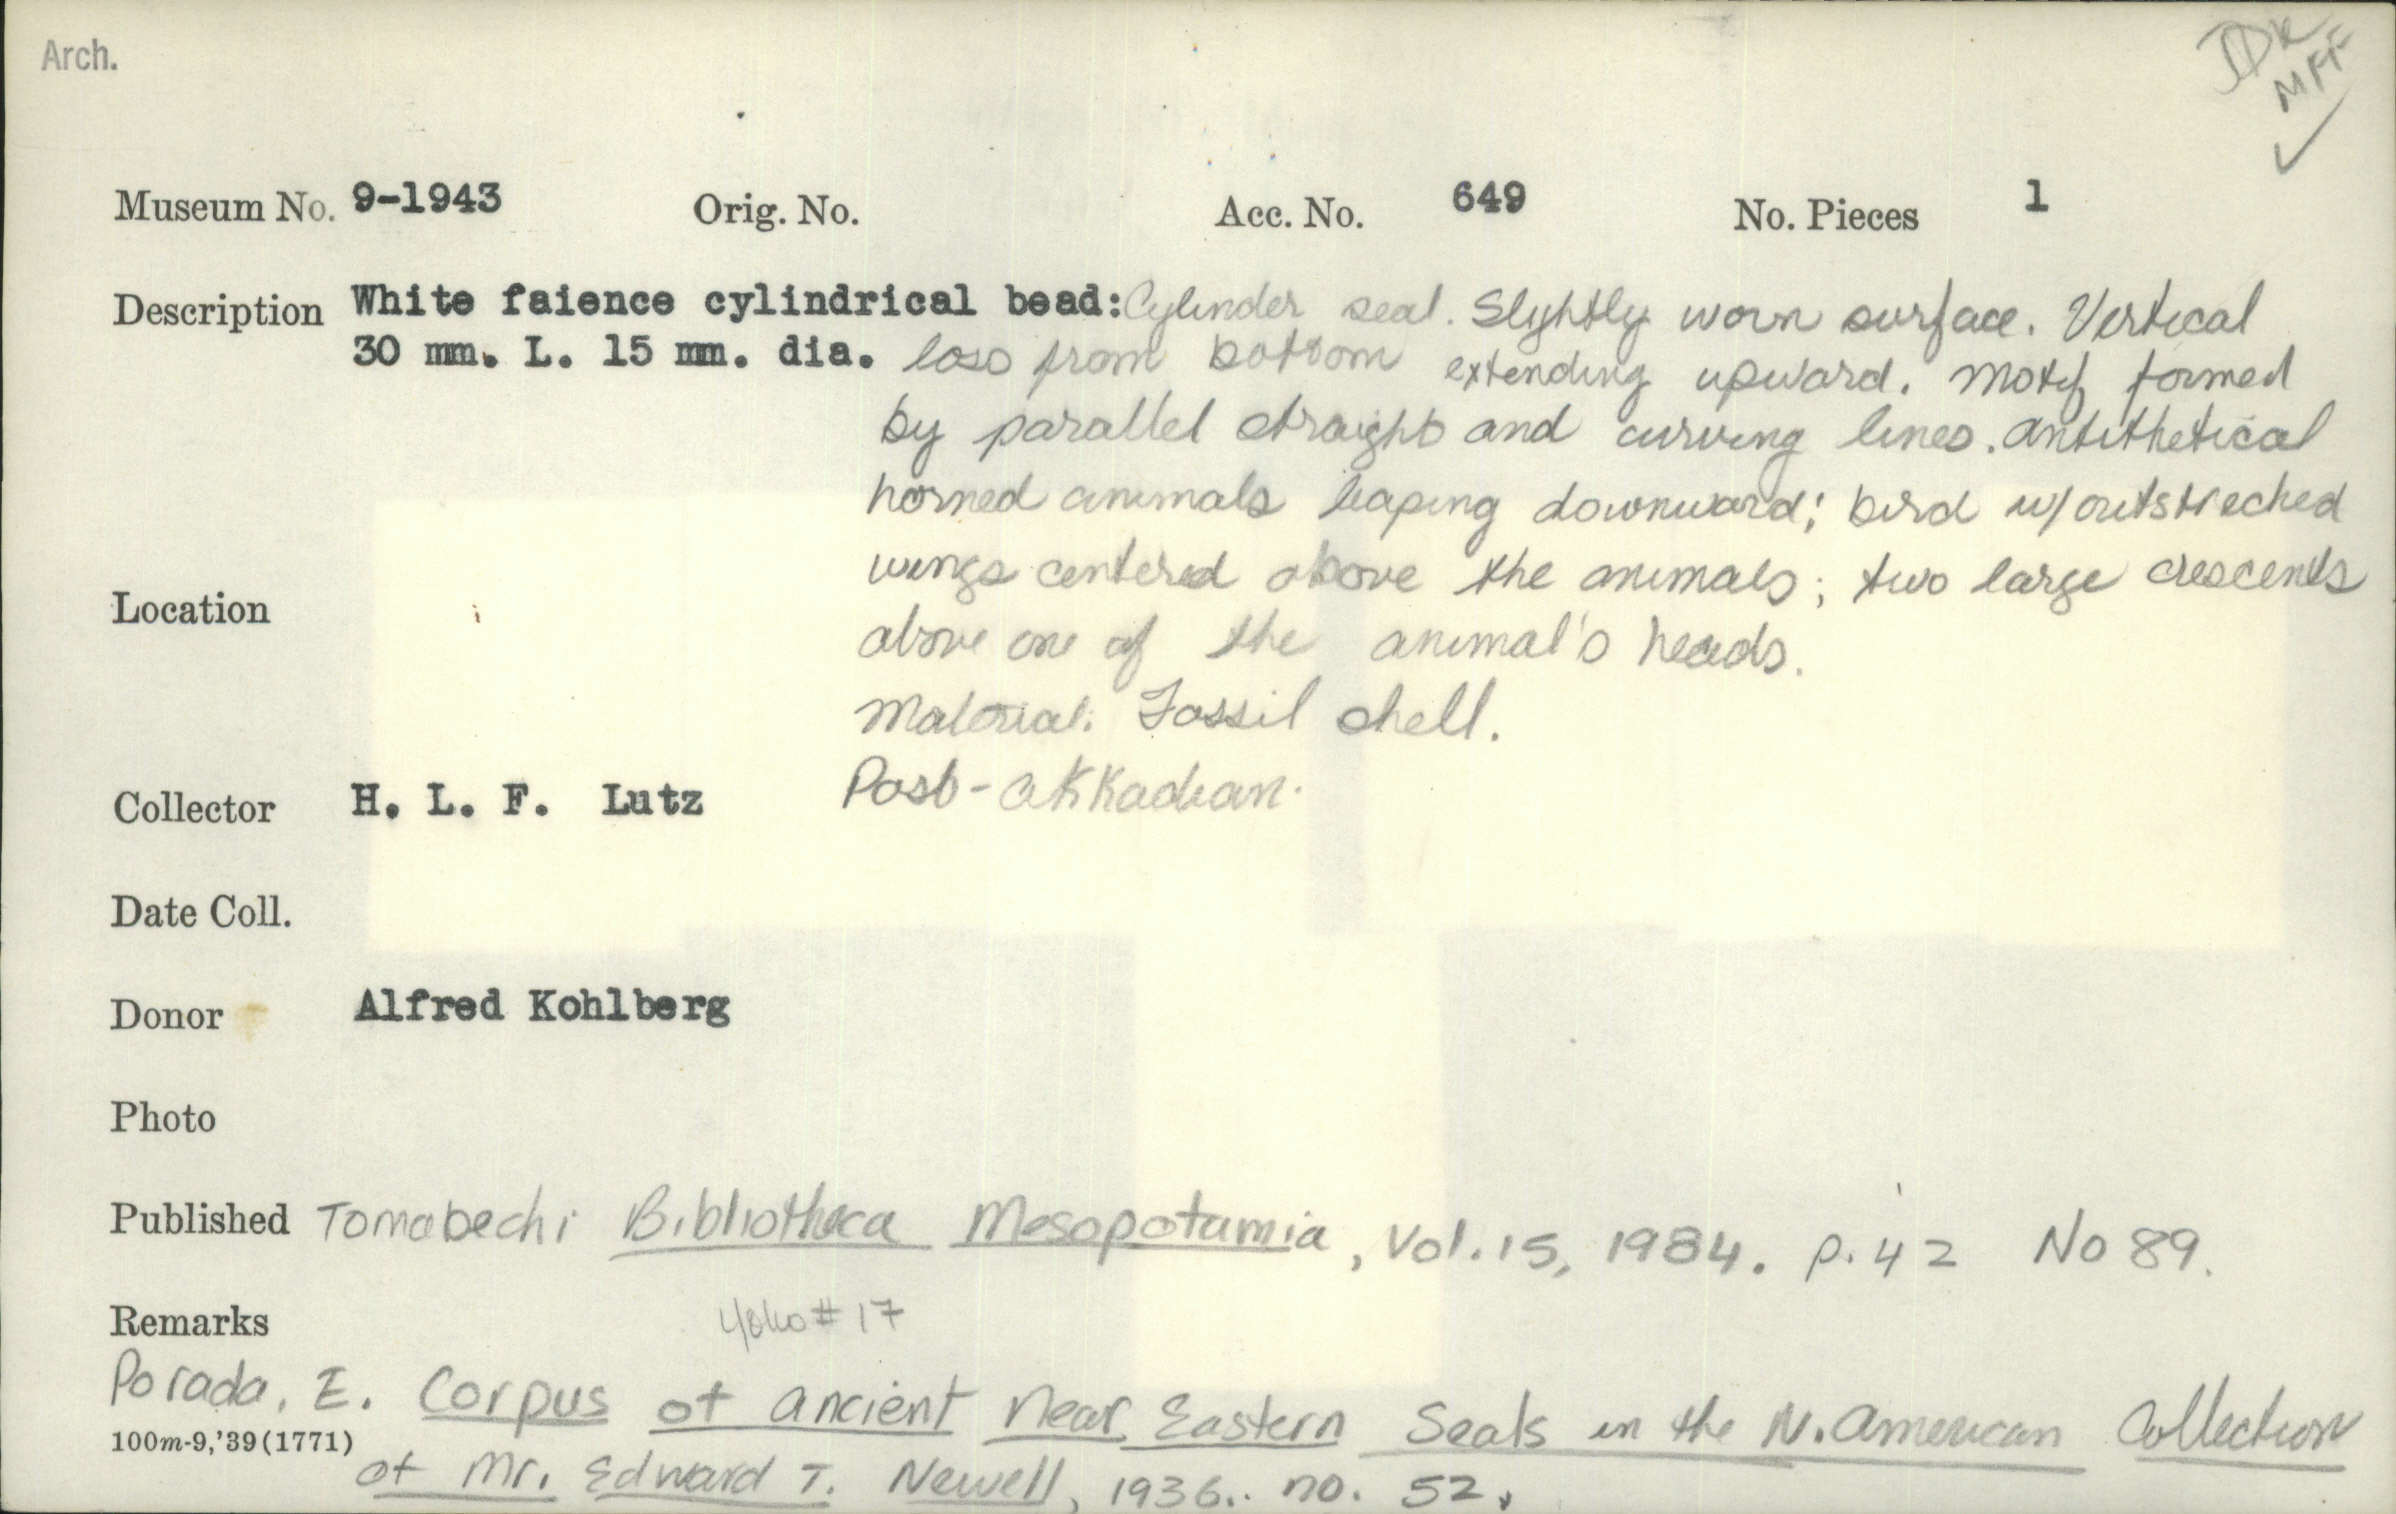 Arch.
MFF
Museum No. 9-1943 Orig. No. Acc. No. 649 No. Pieces 1
Description White faience cylindrical bead: Cylinder seal. Slightly worn surface. Vertical
30 mm. L. 15 mm. dia. loss from bottom extending upward. Motif formed
by parallel straight and curving lines. Antithetical
horned animals leaping downward; bird w/outstreched
wings centered above the animals; two large crescents
Location
above one of the animal's heads.
Material: Fossil shell.
Collector H. L. F. Lutz Post-Akkadian.
Date Coll.
Donor Alfred Kohlberg
Photo
Published Tomabechi Bibliotheca Mesopotamia, Vol. 15, 1984. p. 42 No 89.
Remarks Yoko #17
Porada, E. Corpus of Ancient Near Eastern Seals in the N. American Collection
100m-9,'39(1771)
of Mr. Edward T. Newell, 1936.. no. 52.